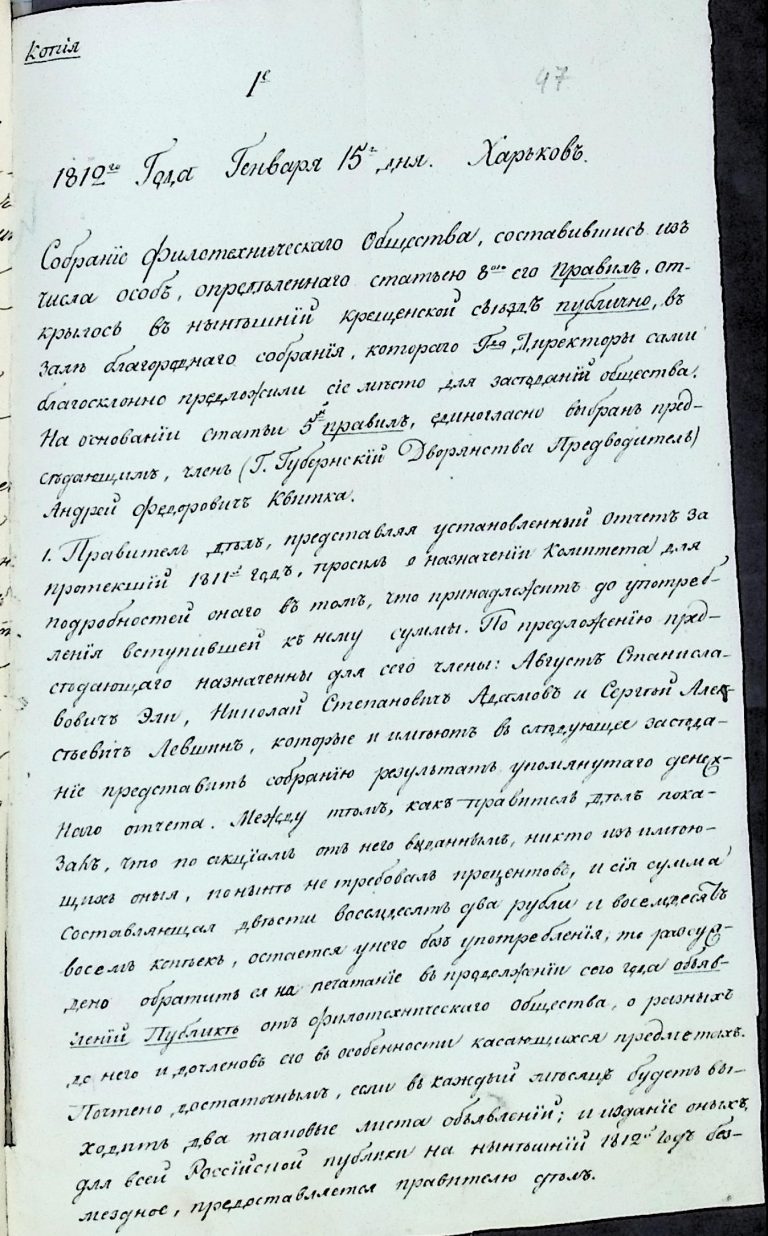 Копія
1е
47
1812го Года Генваря 15го дня. Харьковъ.
Собраніе Филотехническаго Общества, составившись изъ
числа особъ, опредѣленнаго статьею 8ою его правилъ, от-
крылось въ нынѣшній крещенской съѣздъ публично, въ
залѣ благороднаго собранія, котораго Гда Директоры сами
благосклонно предложили сіе мѣсто для засѣданій общества.
На основаніи статьи 5й правилъ, единогласно выбранъ пред-
сѣдающимъ, членъ (Г. Губернскій Дворянства Предводитель)
Андрей Федоровичъ Квитка.
1. Правитель дѣлъ, представляя установленный отчетъ за
протекшій 1811й годъ, просилъ о назначеніи Комитета для
подробностей онаго въ томъ, что принадлежитъ до употреб-
ленія вступившей къ нему суммы. По предложенію пред-
сѣдающаго назначенны для сего члены: Августъ Станисла-
вовичъ Эли, Николай Степановичъ Адамовъ и Сергѣй Алек-
сѣевичъ Левшинъ, которые и имѣютъ въ слѣдующее засѣда-
ніе представить собранію результатъ упомянутаго денеж-
наго отчета. Между тѣмъ, какъ правитель дѣлъ пока-
залъ, что по акціямъ отъ него выданнымъ, никто изъ имѣю-
щихъ оныя, понынѣ не требовалъ процентовъ, и сія сумма
составляющая двѣсти восемдесятъ два рубли и восемдесятъ
восемъ копѣекъ, остается у него безъ употребленія; то разсуж-
дено обратить ея на печатаніе въ продолженіи сего года объяв-
леній Публикѣ отъ Филотехническаго Общества, о разныхъ
до него и дочленовъ его въ особенности касающихся предметахъ.
Почтено достаточнымъ, если въ каждый мѣсяцъ будетъ вы-
ходить два таковые листа объявленій; и изданіе оныхъ
для всей Россійской публики на нынѣшній 1812й годъ без-
мездное, предоставляется правителю дѣлъ.